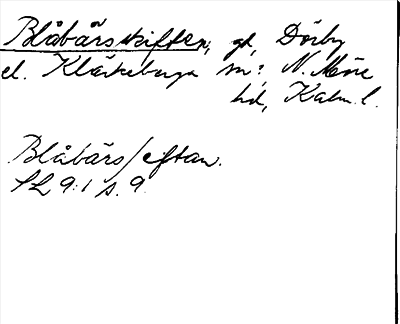 Blåbärsskiften, gd, Dörby
el. Kläckeberga sn?, N. Möre
hd, Kalm. l.
Blåbärs/eiftan.
SL 9:1 s. 9.